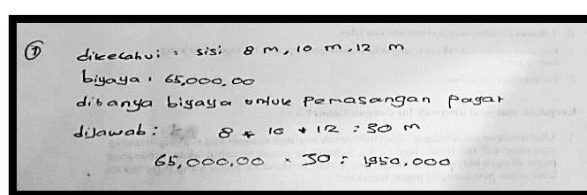 ① diketahui : sisi 8 m, 10 m, 12 m
biyaya : 65,000,00
ditanya biyaya untuk Pemasangan Pagar
diJawab : 8 + 10 + 12 : 30 m
65,000,00 × 30 : 1950,000